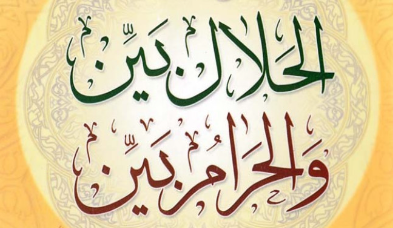 الحَلَال بَيِّن
وَالحَرَامُ بَيِّن